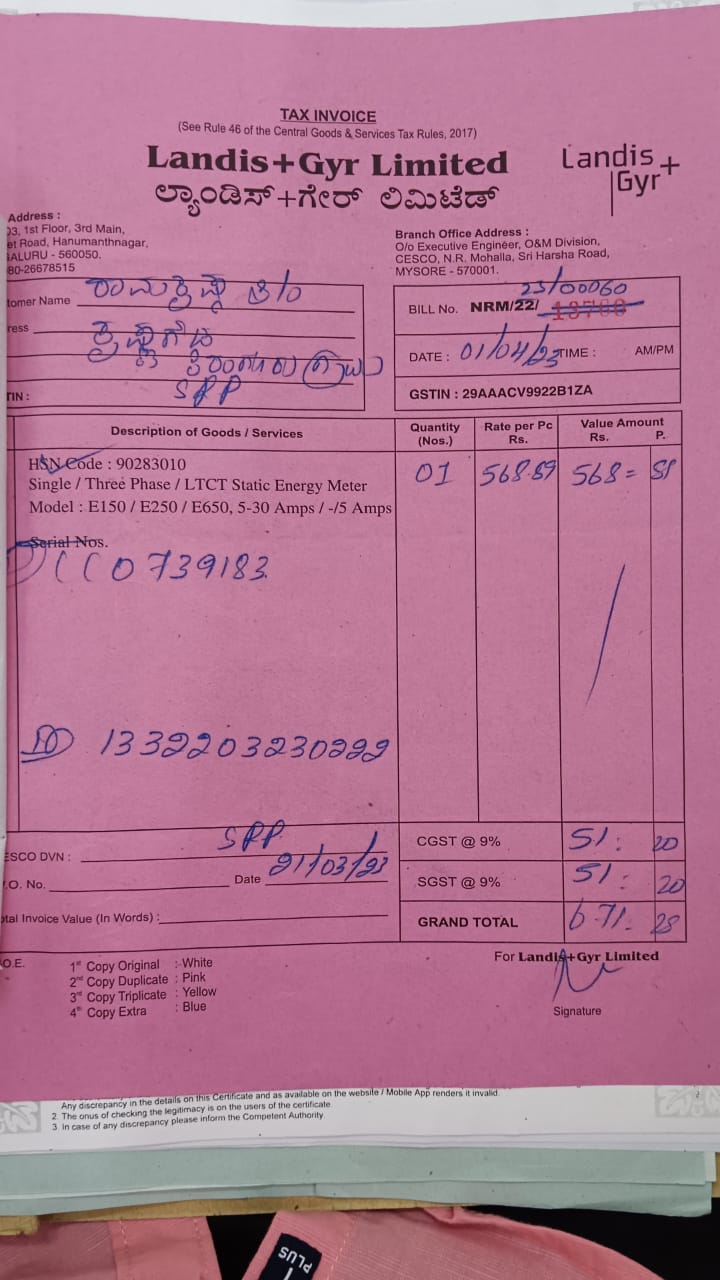 TAX INVOICE
(See Rule 46 of the Central Goods & Services Tax Rules, 2017)
Landis+Gyr Limited
ಲ್ಯಾಂಡಿಸ್+ಗೇರ್ ಲಿಮಿಟೆಡ್
Landis+
Gyr
Address :
03, 1st Floor, 3rd Main,
et Road, Hanumanthnagar,
GALURU - 560050.
80-26678515
Branch Office Address :
O/o Executive Engineer, O&M Division,
CESCO, N.R. Mohalla, Sri Harsha Road,
MYSORE - 570001.
tomer Name
ress
SRP
TIN :
23/00060
BILL No. NRM/22/
DATE : 01/04/23 TIME : AM/PM
GSTIN : 29AAACV9922B1ZA
Description of Goods / Services Quantity (Nos.) Rate per Pc Rs. Value Amount Rs. P.
HSN Code : 90283010
Single / Three Phase / LTCT Static Energy Meter 01 568.89
Model : E150 / E250 / E650, 5-30 Amps / -/5 Amps
Serial Nos.
0739183
1332203230222
ESCO DVN : SRP
.O. No. Date 21/03/23
CGST @ 9% 51: 20
SGST @ 9% 51: 20
otal Invoice Value (In Words) :
GRAND TOTAL 671. 28
O.E.
1st Copy Original : White
2nd Copy Duplicate : Pink
3rd Copy Triplicate : Yellow
4th Copy Extra : Blue
For Landis+Gyr Limited
Signature
Any discrepancy in the details on this Certificate and as available on the website / Mobile App renders it invalid.
2. The onus of checking the legitimacy is on the users of the certificate.
3. In case of any discrepancy please inform the Competent Authority.
PLUS